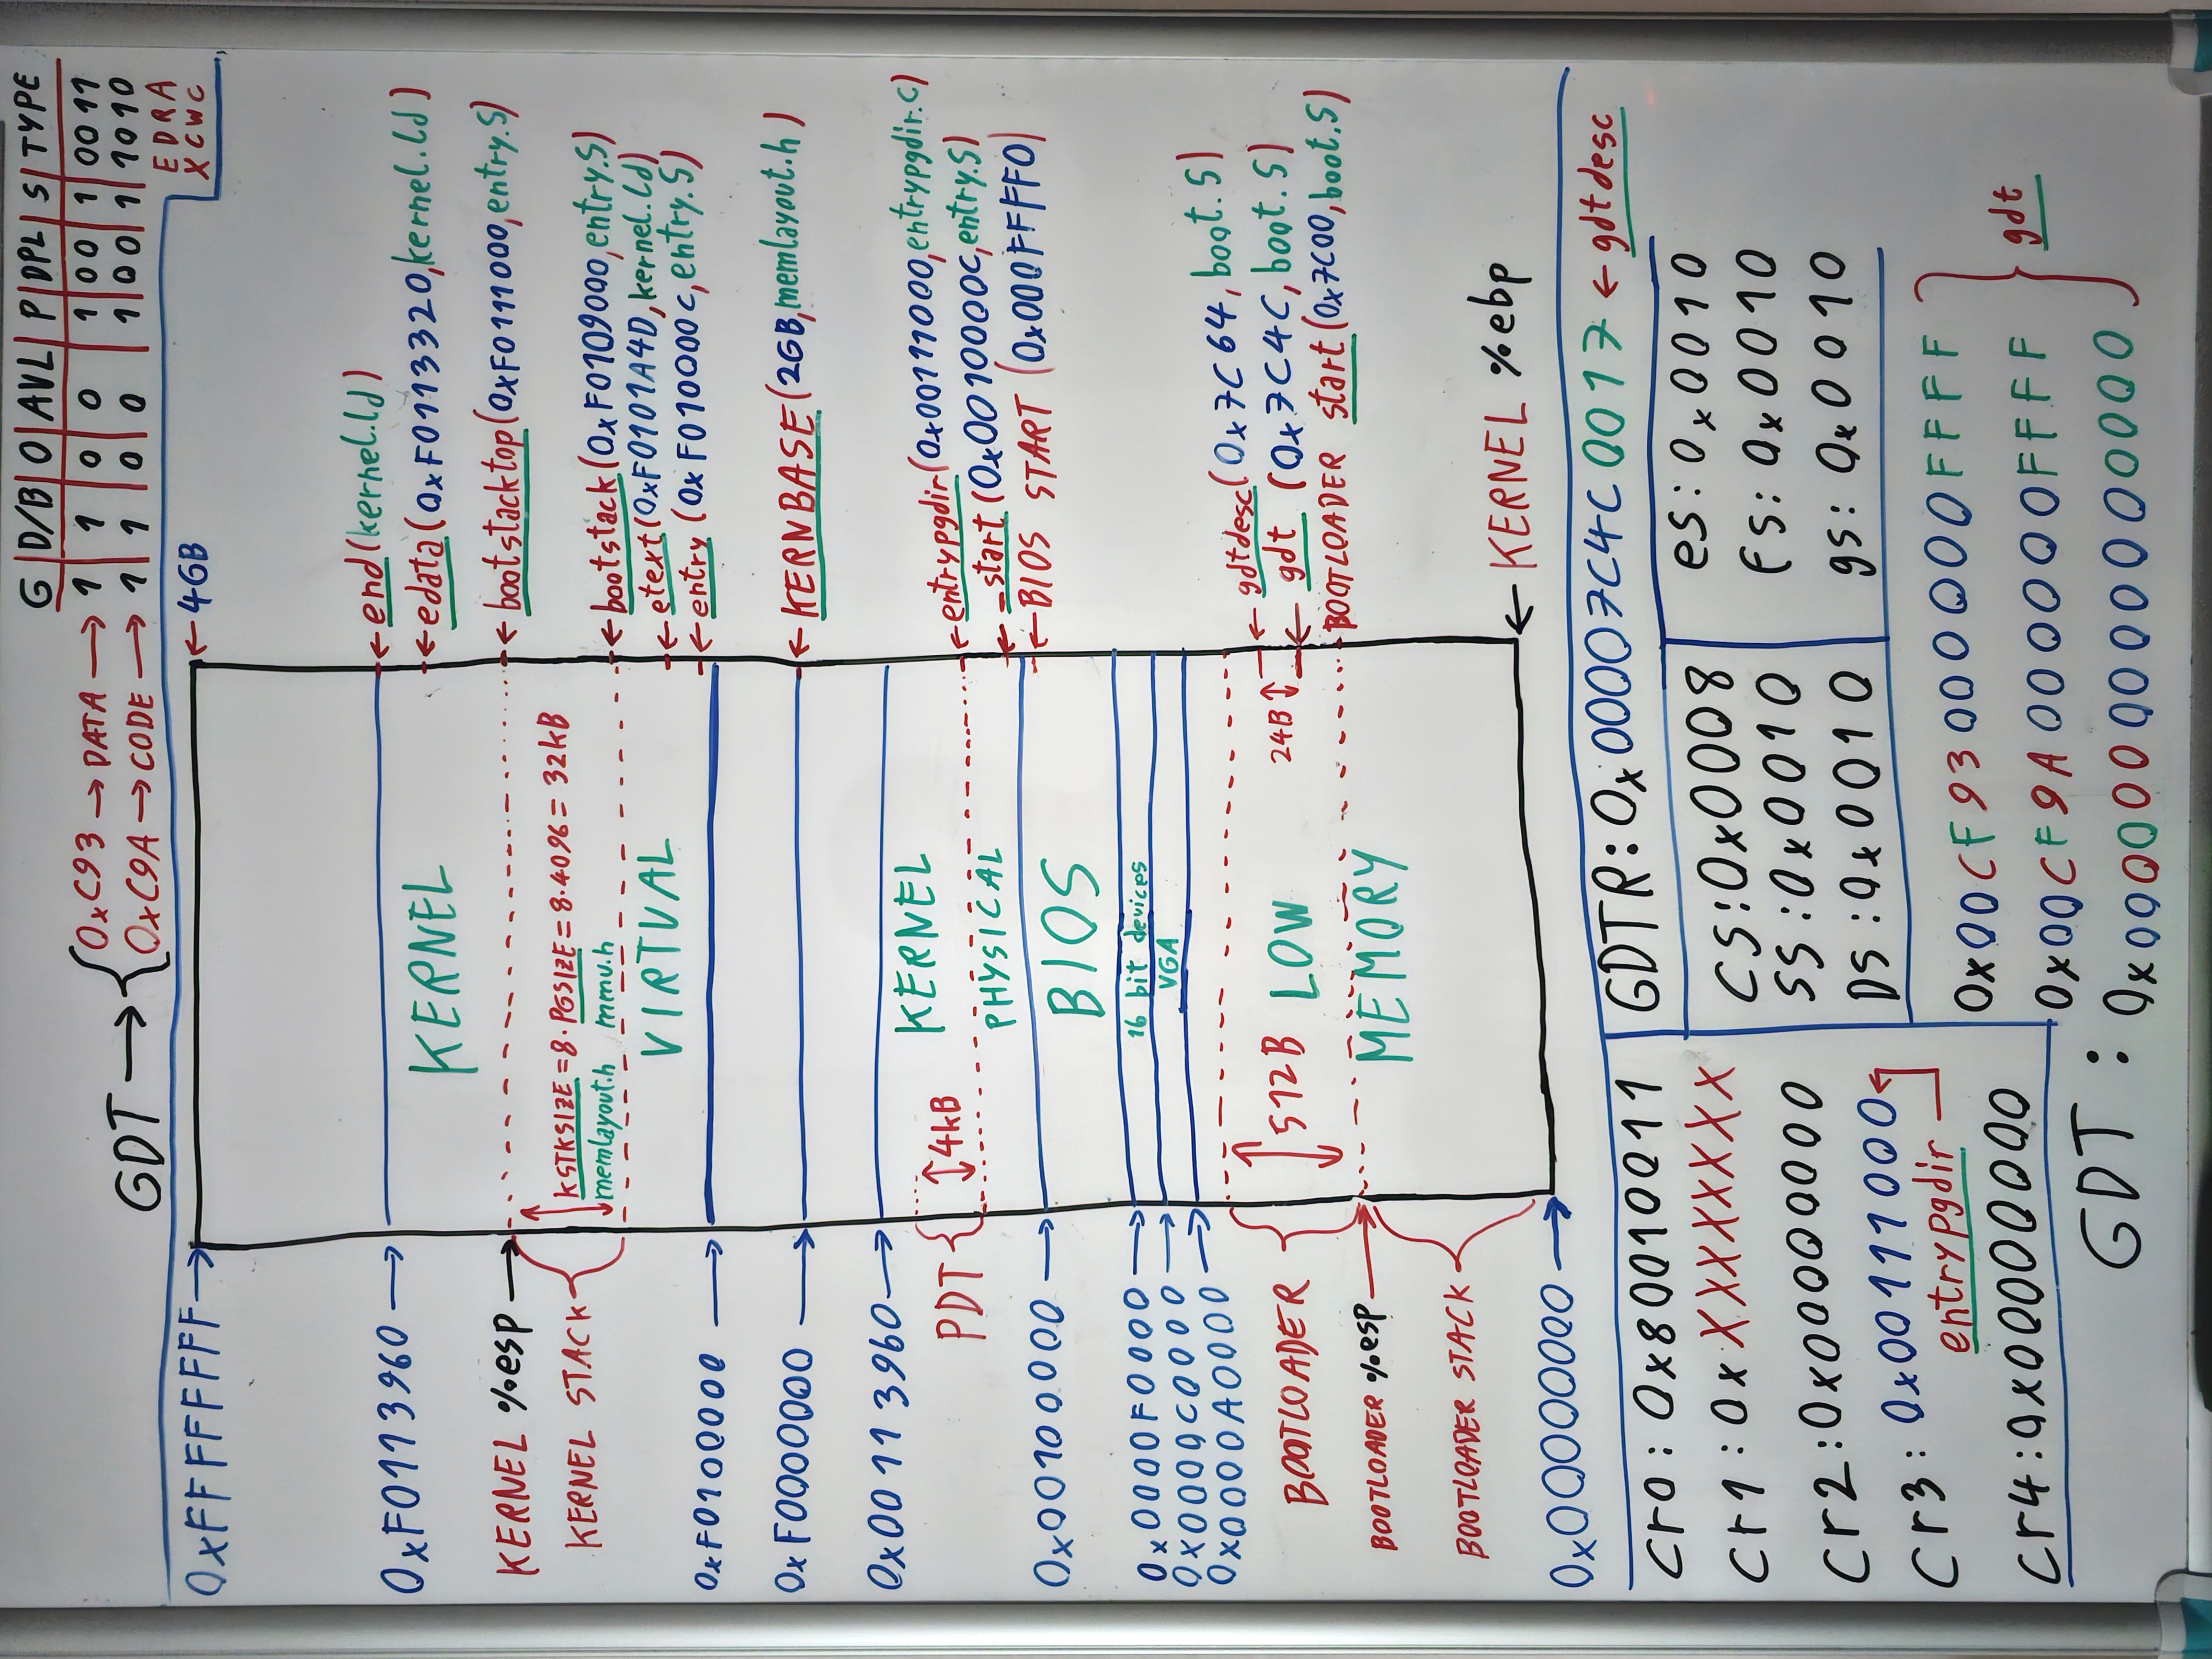 G D/B 0 AVL P DPL S TYPE
0xC93 → DATA → 1 1 0 0 1 00 1 0011
GDT →
0xC9A → CODE → 1 1 0 0 1 00 1 1010
E D R A
X C W C
0xFFFFFFFF → ← 4GB
← end (kernel.ld)
0xF0113960 →
KERNEL
← edata (0xF0113320, kernel.ld)
KERNEL %esp → ← bootstacktop (0xF0111000, entry.S)
KERNEL STACK
KSTKSIZE = 8 · PGSIZE = 8·4096 = 32kB
memlayout.h mmu.h
← bootstack (0xF0109000, entry.S)
VIRTUAL
← etext (0xF0101A4D, kernel.ld)
← entry (0xF010000C, entry.S)
0xF0100000 →
0xF0000000 → ← KERNBASE (2GB, memlayout.h)
0x00113960 →
KERNEL
PDT 4kB
← entrypgdir (0x00111000, entrypgdir.c)
PHYSICAL
← _start (0x0010000C, entry.S)
← BIOS START (0x000FFFF0)
0x00100000 →
BIOS
0x0000F0000 →
16 bit devices
0x0000C0000 →
VGA
0x0000A0000 →
← gdtdesc (0x7C64, boot.S)
BOOTLOADER 512B LOW 24B ← gdt (0x7C4C, boot.S)
BOOTLOADER start (0x7C00, boot.S)
BOOTLOADER %esp →
MEMORY
BOOTLOADER STACK
← KERNEL %ebp
0x00000000 →
GDTR: 0x00007C4C 0017 ← gdtdesc
cr0: 0x80010011
cr1: 0xXXXXXXXX
cr2: 0x00000000
cr3: 0x00111000
entrypgdir
cr4: 0x00000000
CS: 0x0008
SS: 0x0010
DS: 0x0010
es: 0x0010
fs: 0x0010
gs: 0x0010
0x00CF93000000FFFF
0x00CF9A000000FFFF
gdt
GDT:
0x0000000000000000